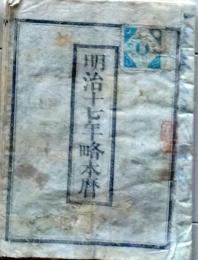 明治十七年略本暦